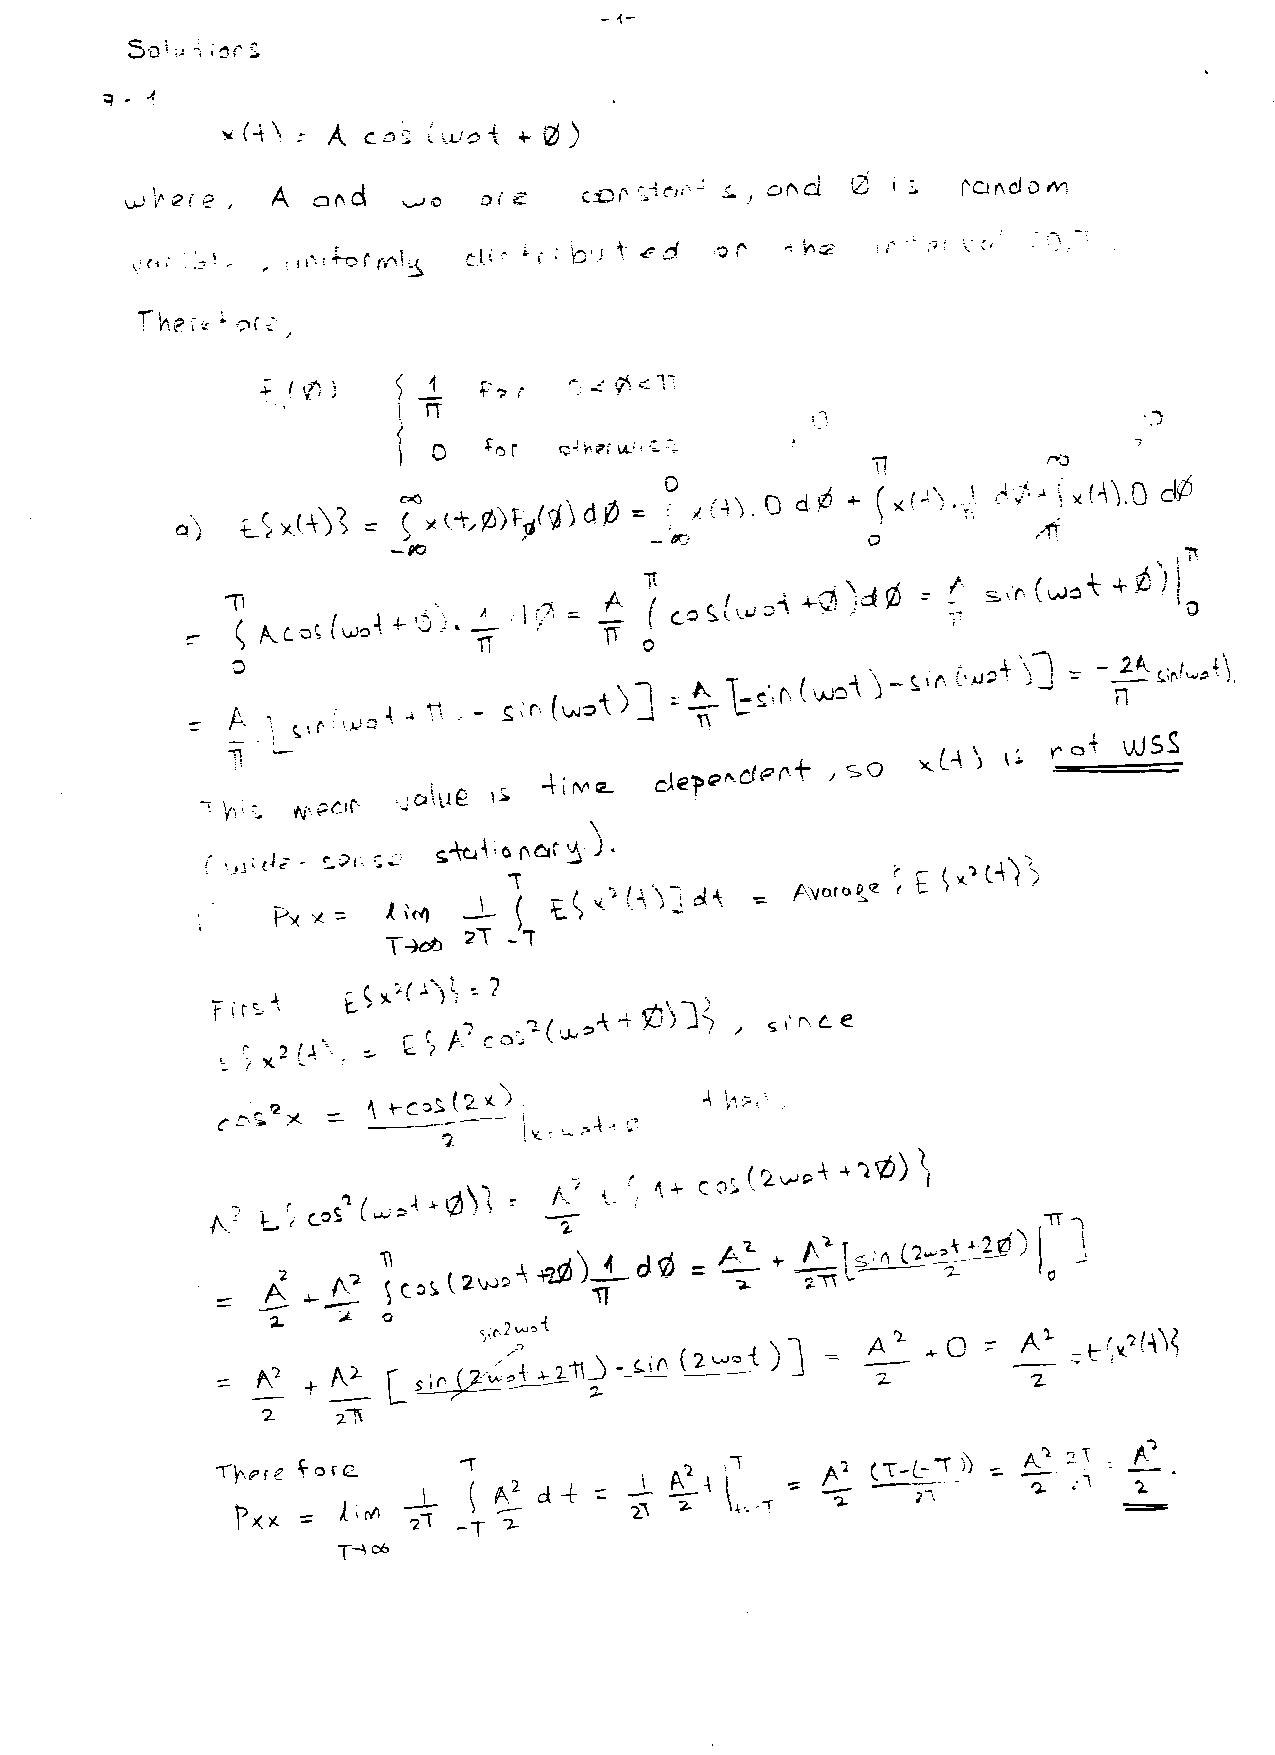 -1-
Solutions
7-1
x(t) = A cos(wot + Ø)
where, A and wo are constants, and Ø is random
variable, uniformly distributed on the interval [0,π].
Therefore,
f (Ø) { 1/π For 0<Ø<π
{ 0 for otherwise
0 0
a) E{x(t)} = ∫_{-∞}^{∞} x(t,Ø)fØ(Ø)dØ = ∫_{-∞}^{0} x(t).0 dØ + ∫_{0}^{π} x(t).1/π dØ + ∫_{π}^{∞} x(t).0 dØ
= ∫_{0}^{π} Acos(wot + Ø). 1/π dØ = A/π ∫_{0}^{π} cos(wot +Ø)dØ = A/π sin(wot + Ø)|_{0}^{π}
= A/π [sin(wot + π) - sin(wot)] = A/π [-sin(wot) - sin(wot)] = -2A/π sin(wot).
This mean value is time dependent, so x(t) is not WSS
(wide-sense stationary).
Pxx = lim_{T→∞} 1/2T ∫_{-T}^{T} E{x²(t)] dt = Avarage {E{x²(t)}}
First E{x²(t)} = ?
E{x²(t)} = E{A² cos²(wot + Ø)]}, since
cos²x = (1+cos(2x))/2 |x=wot+Ø then,
A² E{cos²(wot+Ø)} = A²/2 E{1+ cos(2wot +2Ø)}
= A²/2 + A²/2 ∫_{0}^{π} cos(2wot +2Ø) 1/π dØ = A²/2 + A²/2π [sin(2wot+2Ø)/2 |_{0}^{π}]
sin2wot
= A²/2 + A²/2π [sin(2wot + 2π) - sin(2wot)/2] = A²/2 + 0 = A²/2 = E{x²(t)}
Therefore
Pxx = lim_{T→∞} 1/2T ∫_{-T}^{T} A²/2 dt = 1/2T A²/2 t |_{t=-T}^{T} = A²/2 (T-(-T))/2T = A²/2 2T/2T = A²/2.